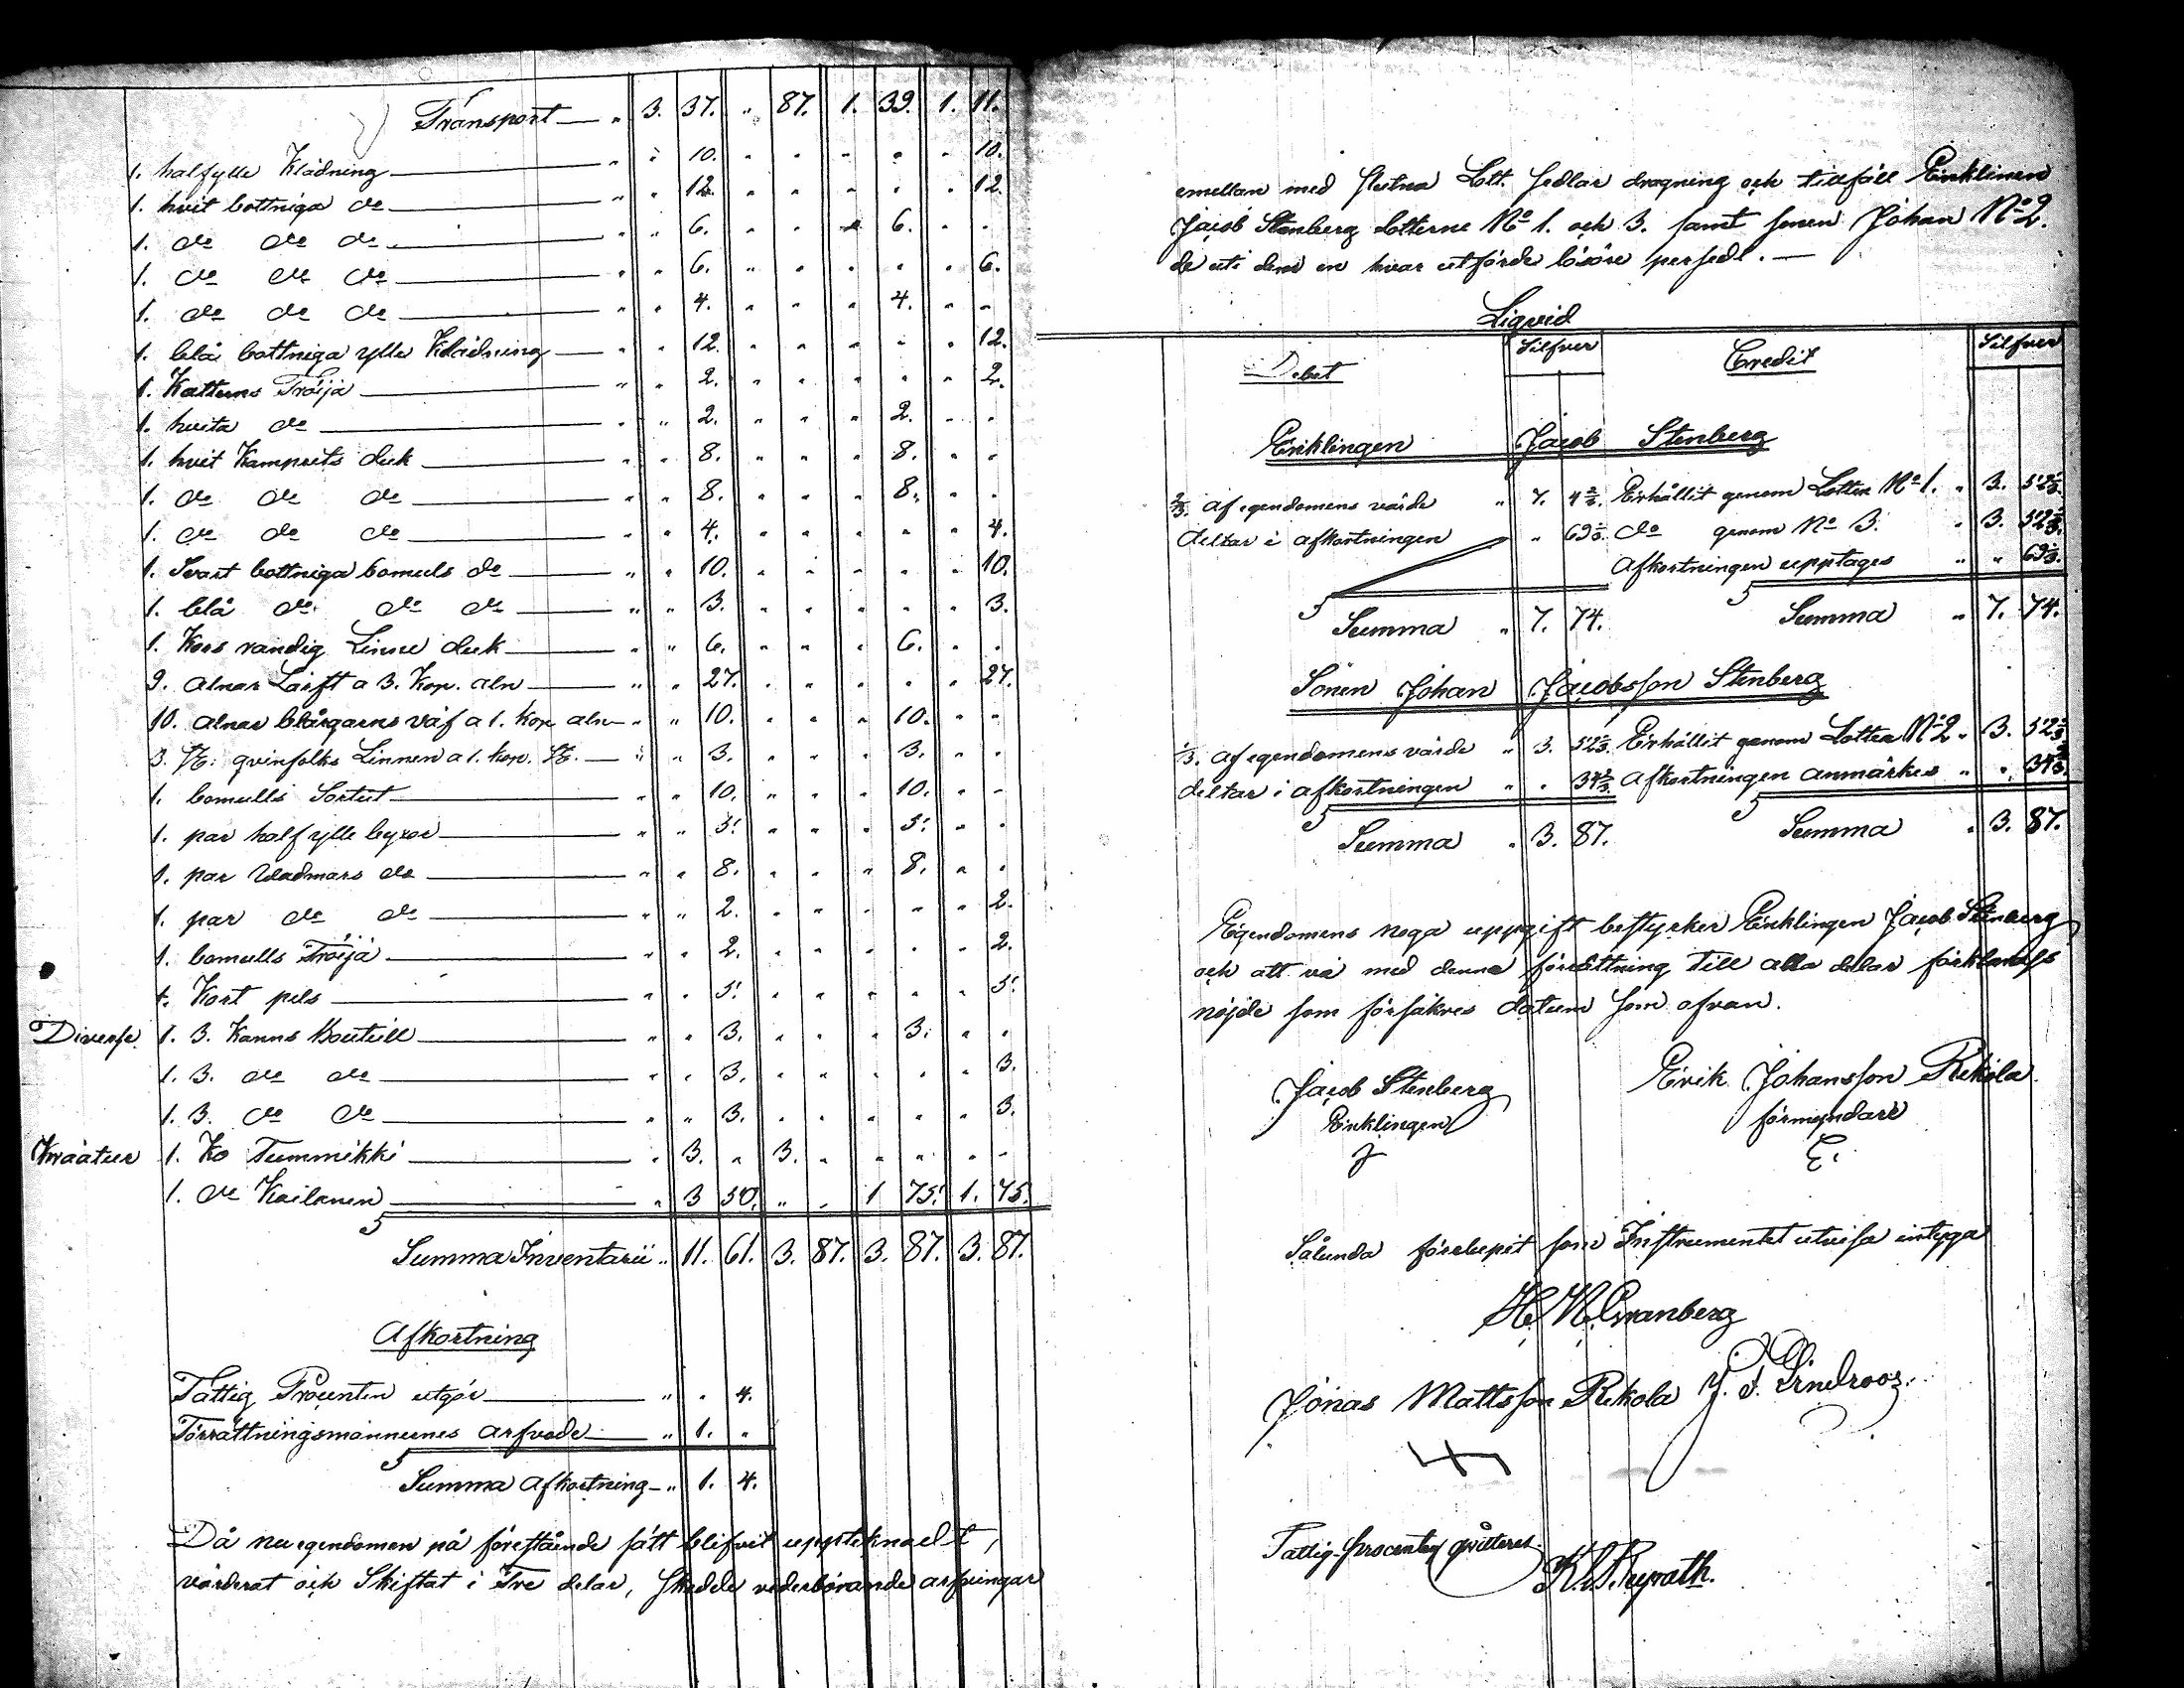 Transport — " 3. 37. " 87. 1. 39. 1. 11.
1. halfylle Klädning — " " 10. " " " " " 10.
1. hvit bottniga do — " " 12. " " " " " 12.
1. do do do — " " 6. " " " 6. " "
1. do do do — " " 6. " " " " " 6.
1. do do do — " " 4. " " " 4. " "
1. blå bottniga ylle Klädning — " " 12. " " " " " 12.
1. Kattuns Tröija — " " 2. " " " " " 2.
1. hvita do — " " 2. " " " 2. " "
1. hvit Kamprets duk — " " 8. " " " 8. " "
1. do do do — " " 8. " " " 8. " "
1. do do do — " " 4. " " " " " 4.
1. Svart bottniga bomuls do — " " 10. " " " " " 10.
1. blå do do do — " " 3. " " " " " 3.
1. Kors randig Linne duk — " " 6. " " " 6. " "
9. alnar Lärft a 3. Kop. aln — " " 27. " " " " " 27.
10. alnar blårgarns väf a 1. kop aln — " " 10. " " " 10. " "
3. qvinfolks Linnen a 1. kop. — " " 3. " " " 3. " "
1. bomulls Sortut — " " 10. " " " 10. " "
1. par half ylle byxor — " " 5. " " " 5. " "
1. par Wadmars do — " " 8. " " " 8. " "
1. par do do — " " 2. " " " " " 2.
1. bomulls Tröija — " " 2. " " " " " 2.
1. Kort pels — " " 5. " " " " " 5.
Diverse 1. 3. Kanns Boutéill — " " 3. " " " 3. " "
1. 3. do do — " " 3. " " " " " 3.
1. 3. do do — " " 3. " " " " " 3.
Kreatur 1. Ko Tummikki — " 3. " 3. " " " " "
1. do Kailanen — " 3 50. " " 1 75. 1. 75.
Summa Inventarii " 11. 61. 3. 87. 3. 87. 3. 87.
Afkortning
Fattig Procenten utgör — " " 4.
Förrättningsmännernes arfvode — " 1. "
Summa afkortning — " 1. 4.
Då nu egendomen på förestående sätt blifvit upptecknadt,
värderat och Skiftat i Tre delar, skedde vederbörande arfvingar
emellan med slutna Lott sedlar dragning och tillföll Enklingen
Jacob Stenberg Lotterne No 1. och 3. samt sonen Johan No 2.
de uti dem en hvar utförde lösöre persedl. —
Liqvid
Debet Silfver Credit Silfver
Enklingen Jacob Stenberg
2/3. af egendomens värde " 7. 4 2/3. Erhållit genom Lotten No 1. " 3. 52 1/3.
deltar i afkortningen " " 69 1/3. do genom No 3. " 3. 52 1/3.
Afkortningen upptages " " 69 1/3.
Summa " 7. 74. Summa " 7. 74.
Sonen Johan Jacobsson Stenberg
1/3. af egendomens värde " 3. 52 1/3. Erhållit genom Lotten No 2 " 3. 52 1/3
deltar i afkortningen " " 34 2/3 Afkortningen anmärkes " " 34 2/3.
Summa " 3. 87. Summa " 3. 87.
Egendomens noga uppgift bestyrker Enklingen Jacob Stenberg
och att vi med denna förrättning till alla delar förklarats
nöjde som försäkres datum som ofvan.
Jacob Stenberg Erik Johansson Rekola
Enklingen förmyndare
J E.
Sålunda förelupit som Instrumentet utvisa intyga
H. M. Granberg
Jonas Mattsson Rekola J. F. Lindroos.
Fattig-procenten qvitteras